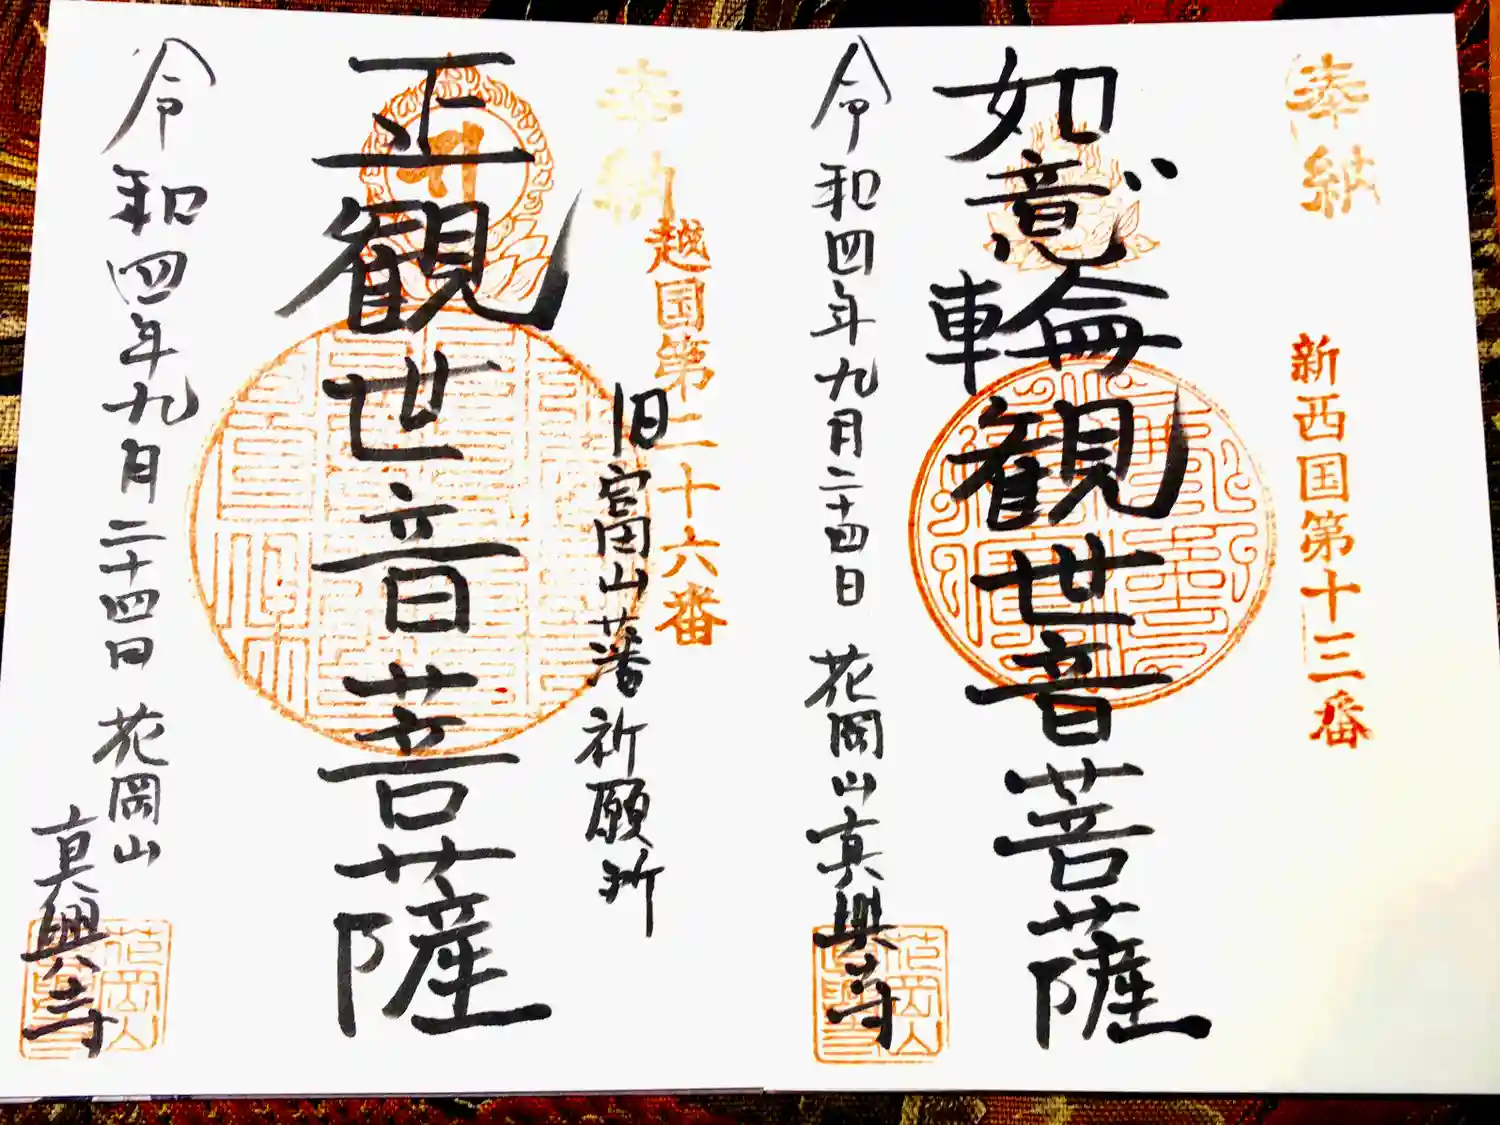 奉納
新西国第十三番
如意輪観世音菩薩
令和四年九月二十四日 花岡山真興寺
花岡山
奉納
越国第二十六番
旧富山藩祈願所
正観世音菩薩
令和四年九月二十四日 花岡山
真興寺
花岡山